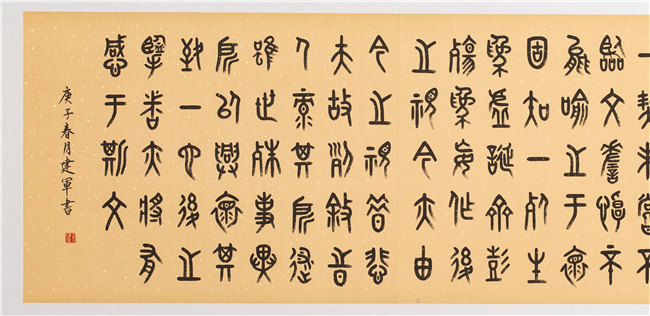 一契未嘗不
臨文嗟悼不
能喻之于懷
固知一死生
為虛誕齊彭
殤為妄作後
之視今亦由
今之視昔悲
夫故列敘時
人錄其所述
雖世殊事異
所以興懷其
致一也後之
攬者亦將有
感于斯文
庚子春月建軍書